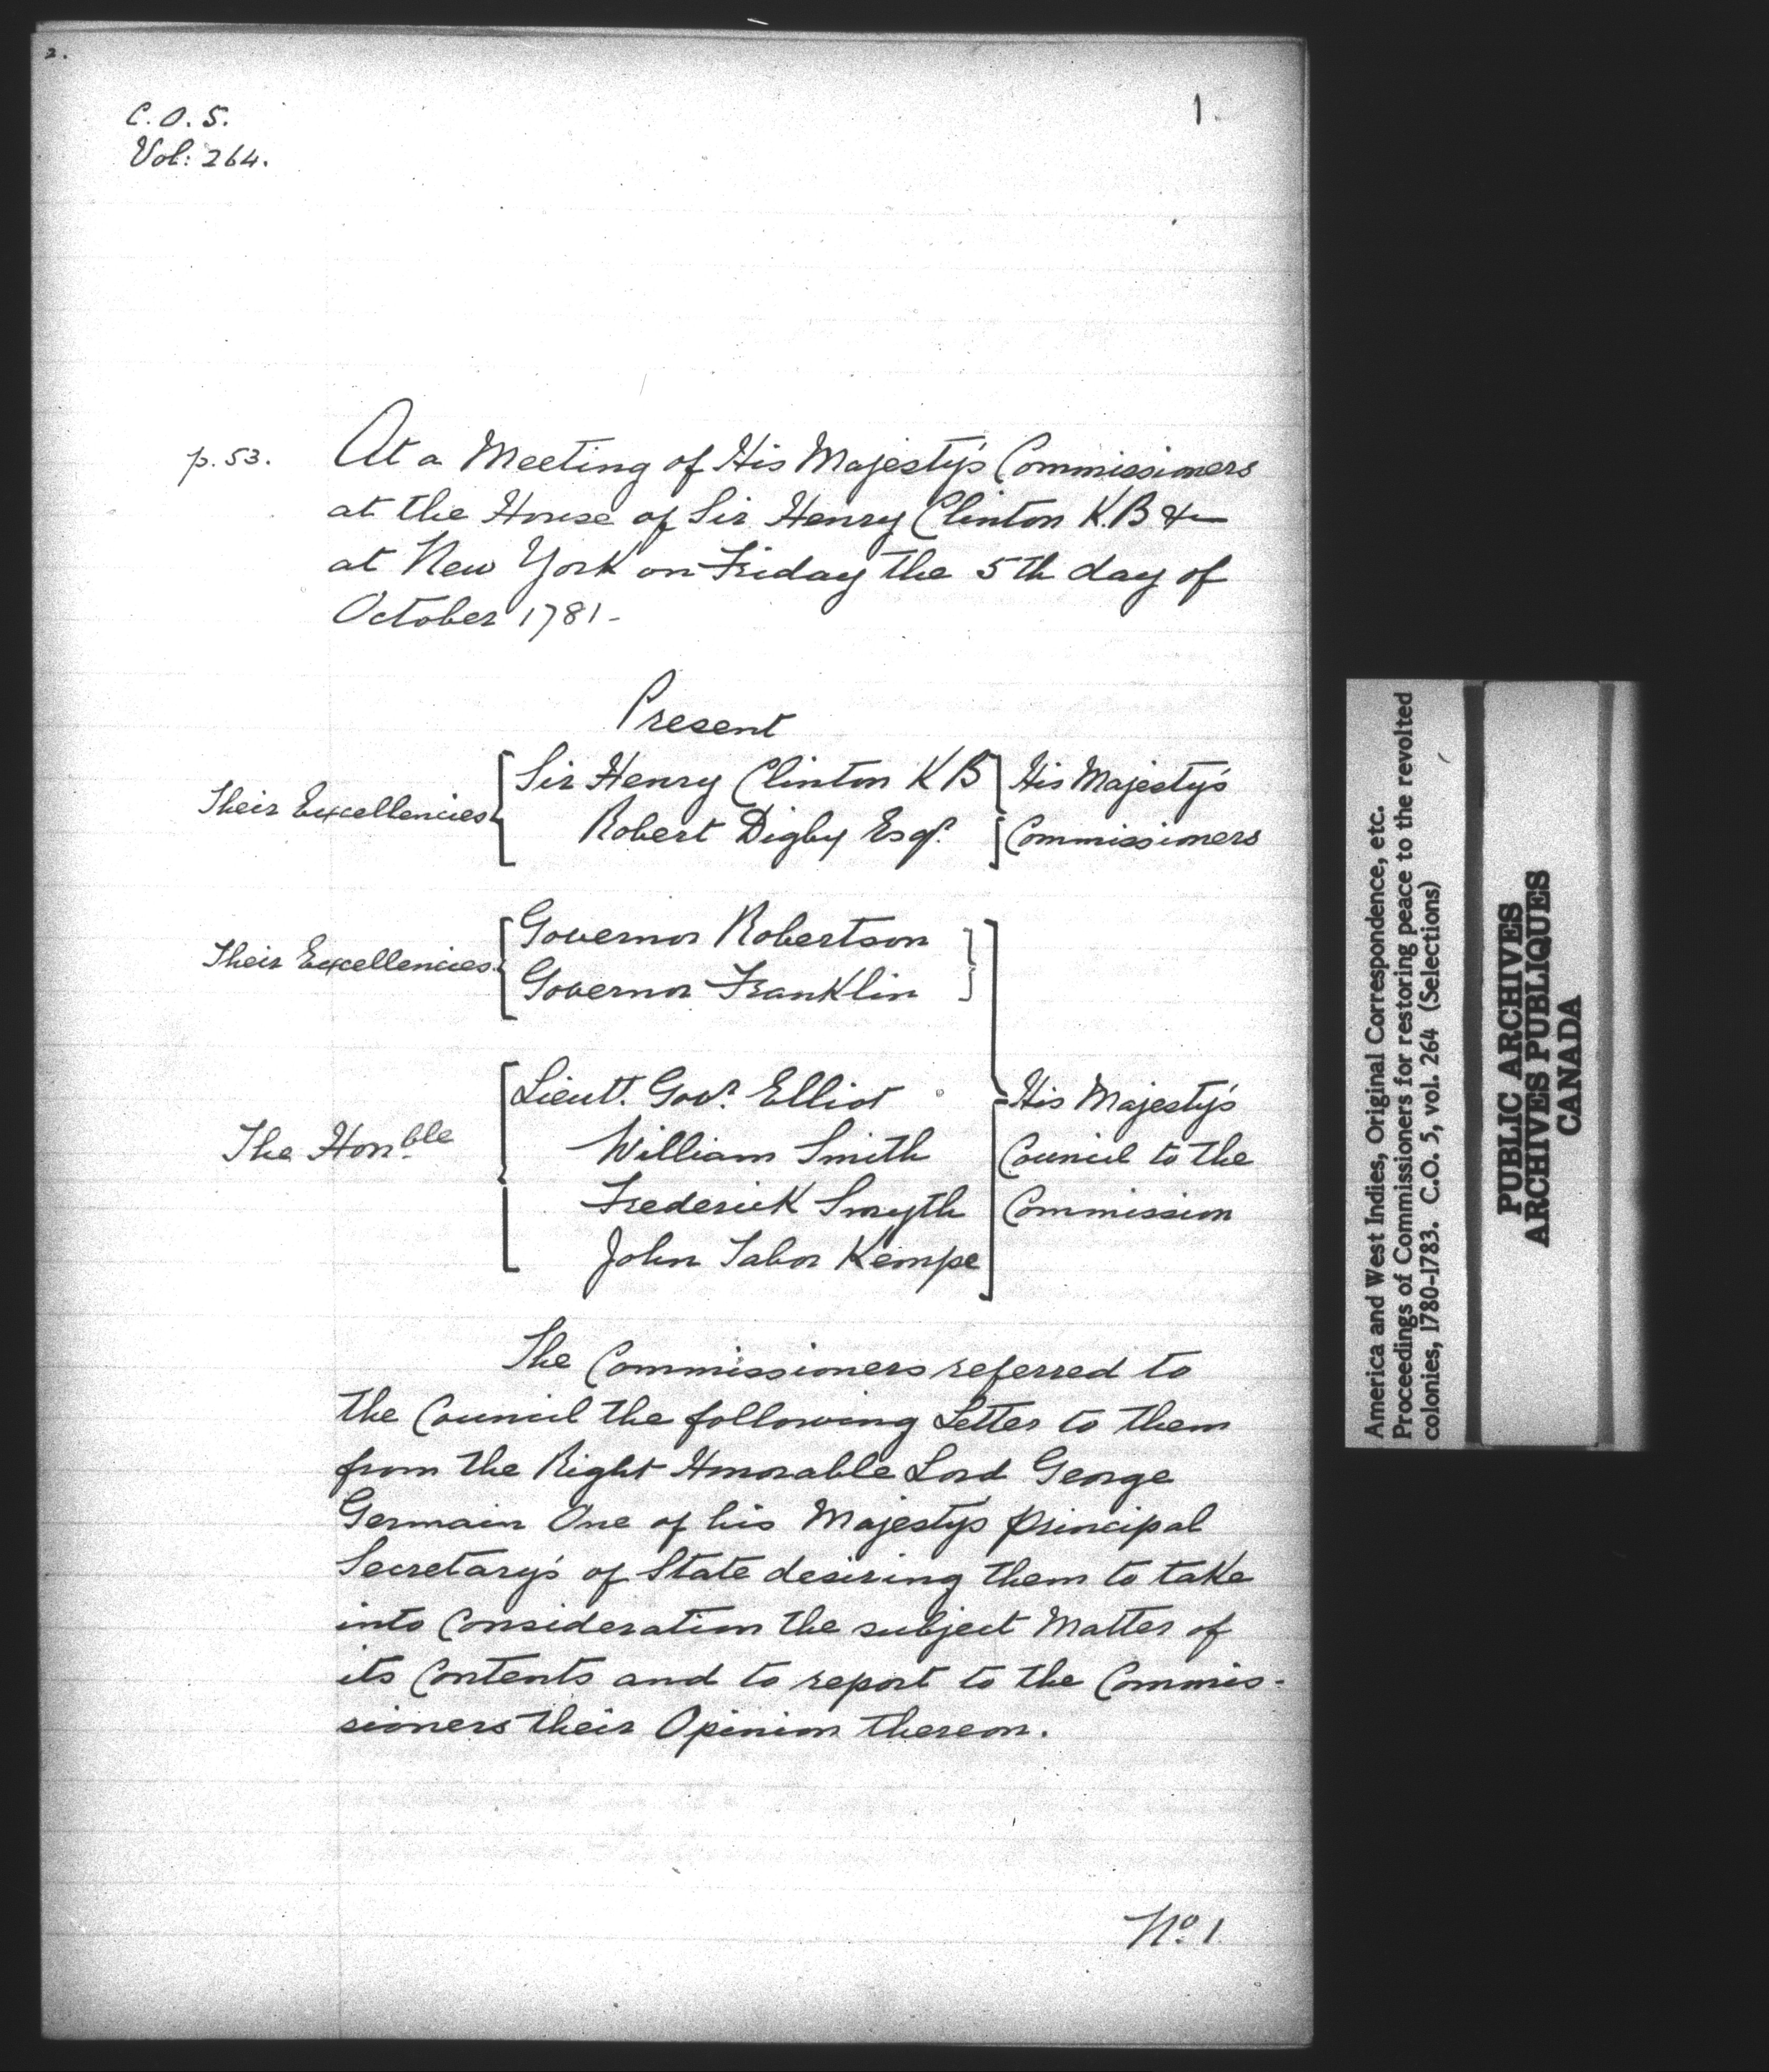 2.
C.O.5.
Vol: 264.
1.
p.53.
At a Meeting of His Majesty's Commissioners
at the House of Sir Henry Clinton K.B &c
at New York on Friday the 5th day of
October 1781-
Present
Their Excellencies
Sir Henry Clinton K B
Robert Digby Esqr.
His Majesty's
Commissioners
Their Excellencies
Governor Robertson
Governor Franklin
The Hon.ble
Lieutt. Govr. Elliot
William Smith
Frederick Smyth
John Tabor Kempe
His Majesty's
Council to the
Commission
The Commissioners referred to
the Council the following Letter to them
from the Right Honorable Lord George
Germain One of his Majestys principal
Secretary's of State desiring them to take
into Consideration the subject Matter of
its Contents and to report to the Commis-
sioners their Opinion thereon.
No. 1
America and West Indies, Original Correspondence, etc.
Proceedings of Commissioners for restoring peace to the revolted
colonies, 1780-1783. C.O. 5, vol. 264 (Selections)
PUBLIC ARCHIVES
ARCHIVES PUBLIQUES
CANADA